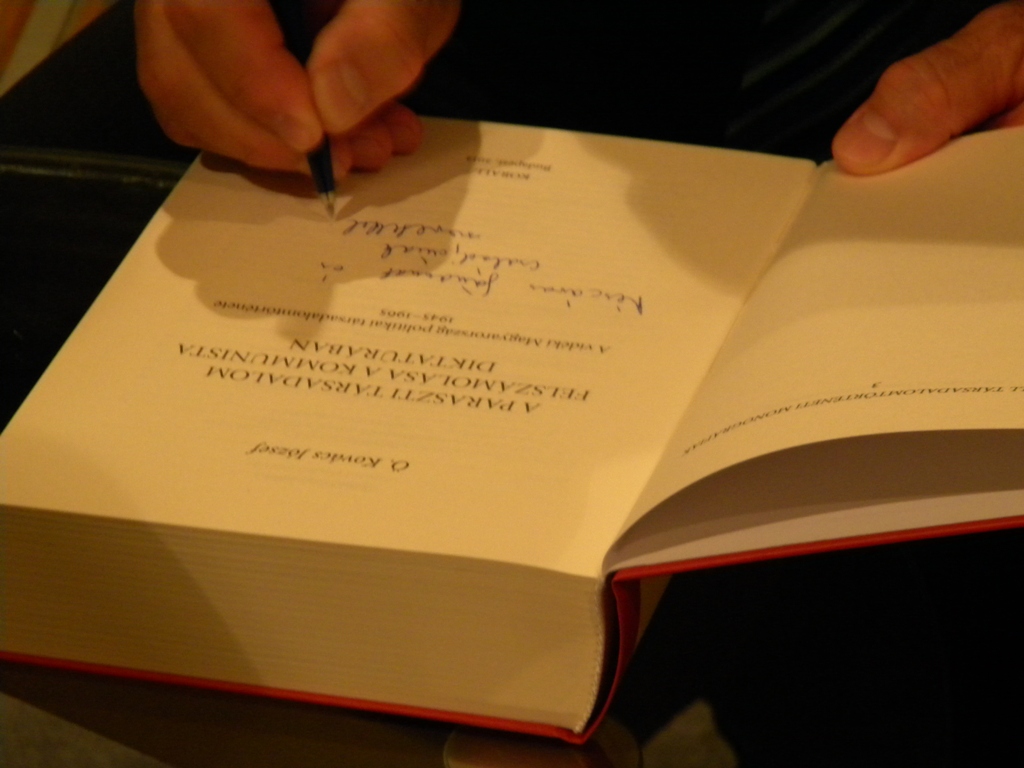 Ö. Kovács József
A PARASZTI TÁRSADALOM
FELSZÁMOLÁSA A KOMMUNISTA
DIKTATÚRÁBAN
A vidéki Magyarország politikai társadalomtörténete
1945–1965
családjának
szeretettel
KORALL
Budapest, 2012
TÁRSADALOMTÖRTÉNETI MONOGRÁFIÁK
3